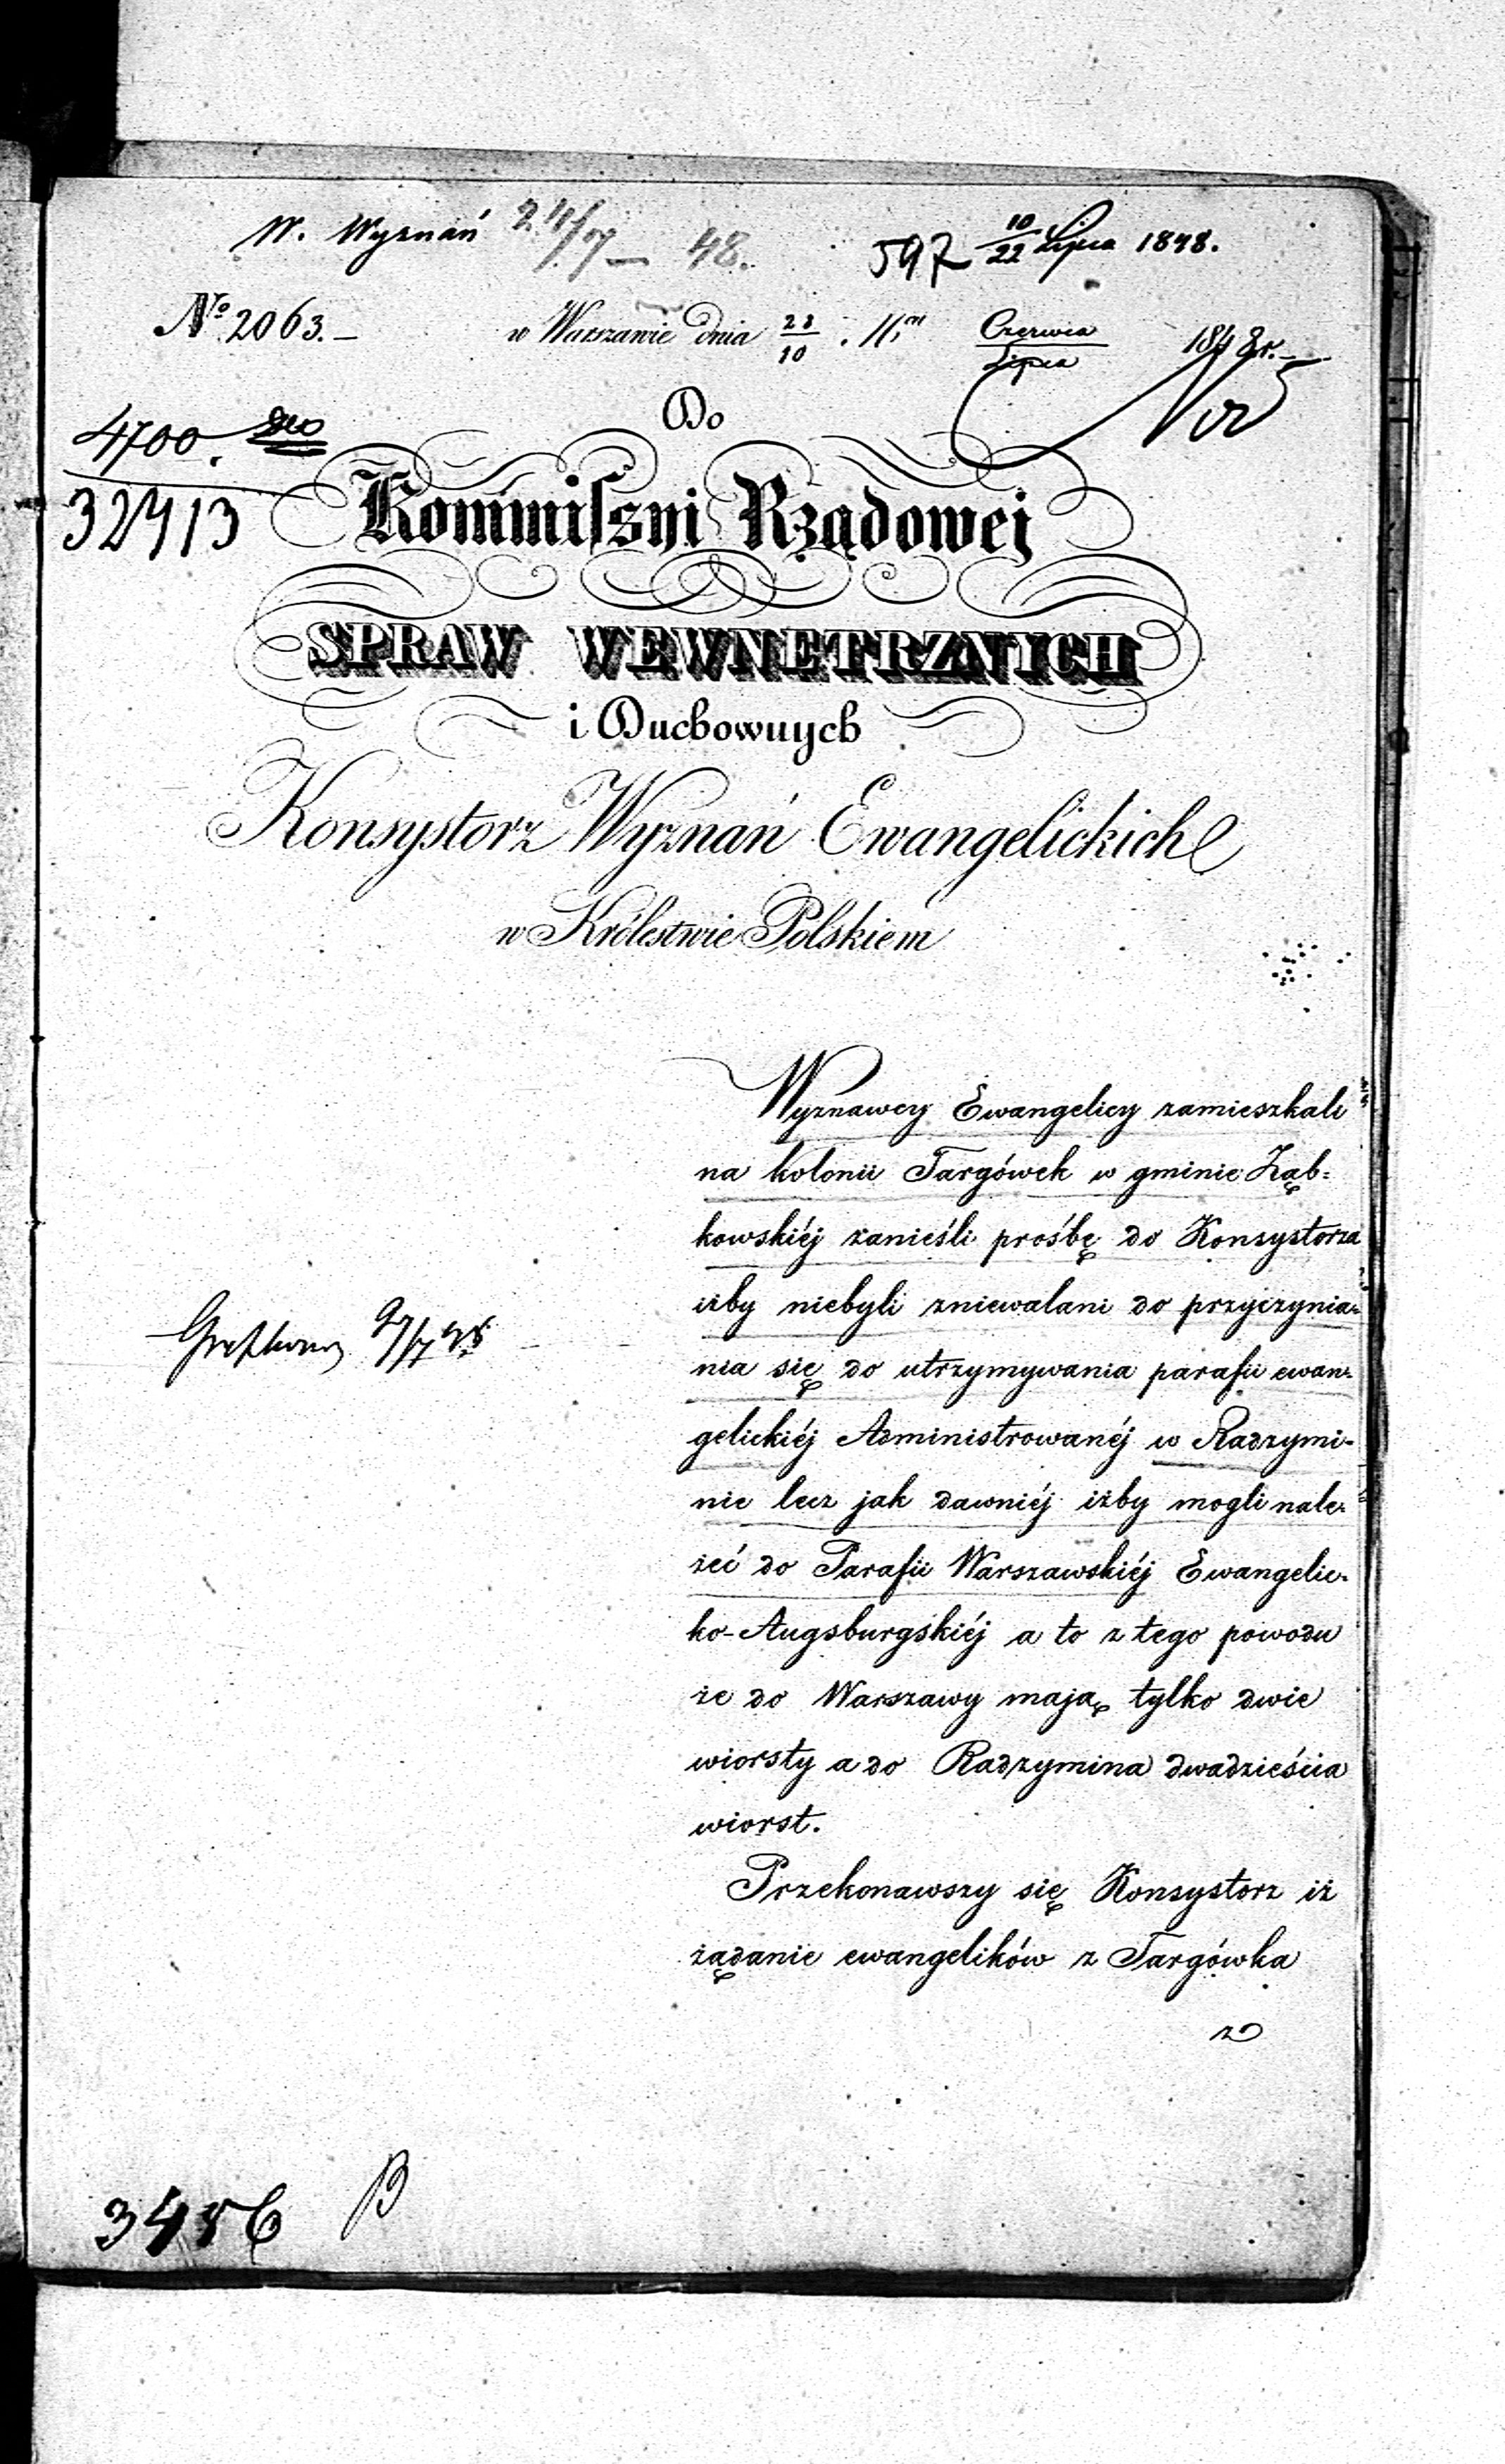 W. Wyznań 24/7 — 48. 597 10/22 Lipca 1848.
No 2063.— w Warszawie dnia 28/10 . Czerwca/Lipca 1848r.—
4700.
32413
Do
Kommisszyi Rządowej
SPRAW WEWNETRZNYCH
i Duchownych
Konsystorz Wyznań Ewangelickich
w Królestwie Polskiem
Wyznawcy Ewangelicy zamieszkali
na kolonii Targówek w gminie Ząb=
kowskiéj zanieśli prośbę do Konsystorza
iżby niebyli zniewalani do przyczynia=
nia się do utrzymywania parafii ewan=
gelickiéj Administrowanéj w Radzymi=
nie lecz jak dawniéj iżby mogli nale=
żeć do Parafii Warszawskiéj Ewangelic=
ko-Augsburgskiéj a to z tego powodu
że do Warszawy mają tylko dwie
wiorsty a do Radzymina dwadzieścia
wiorst.
Przekonawszy się Konsystorz iż
żądanie ewangelików z Targówka
z
27/7 48
3456 B